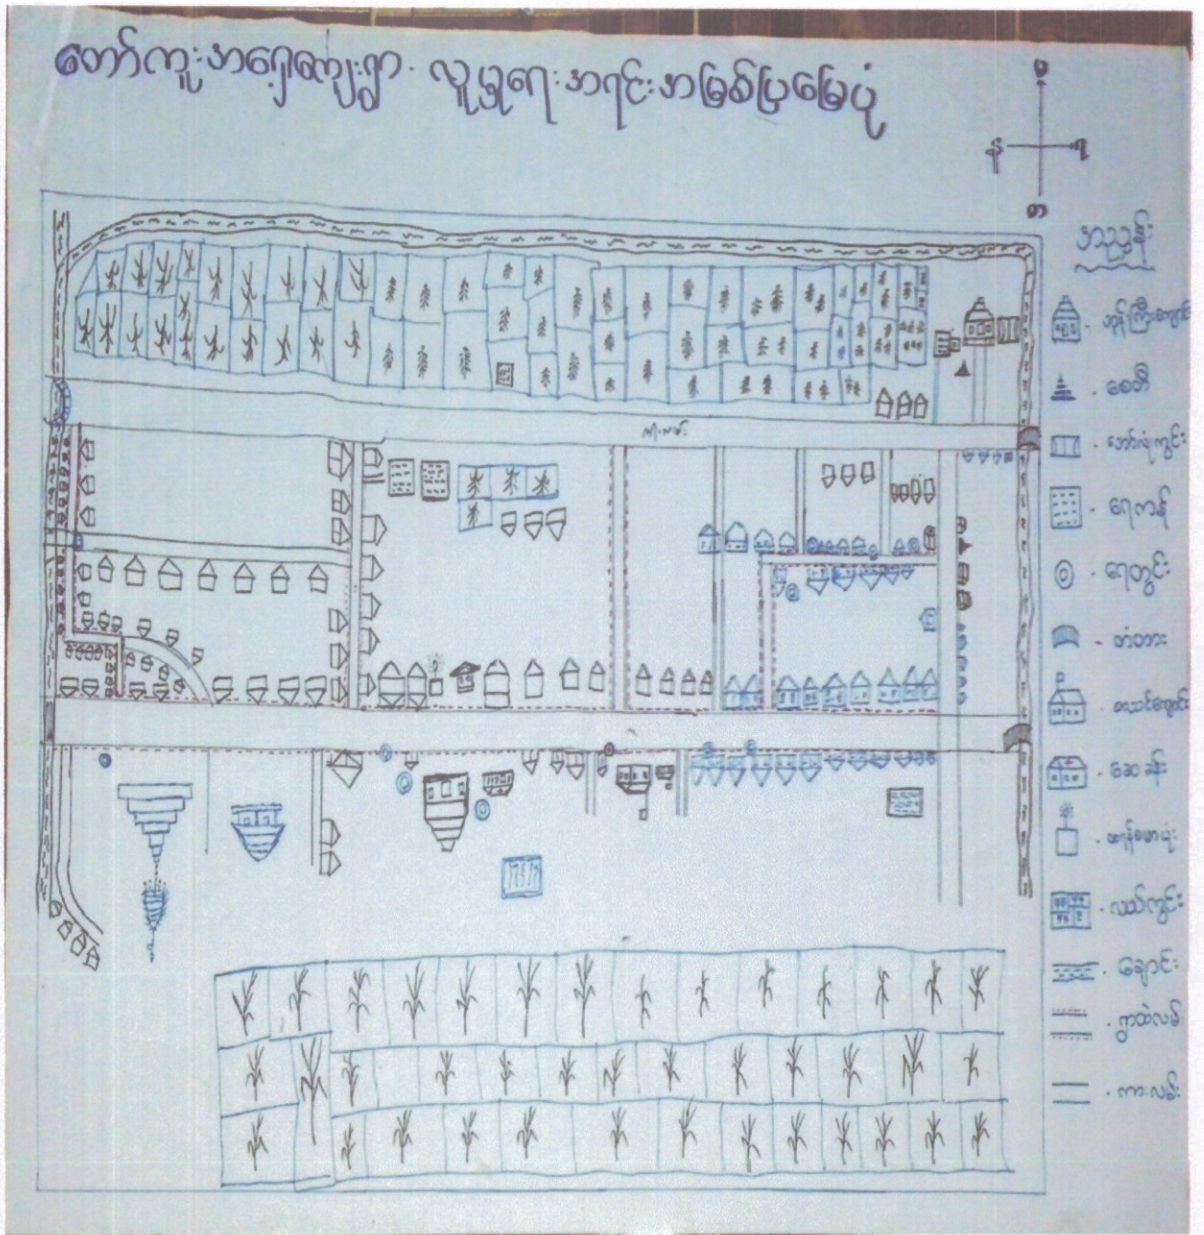 တော်ကူးအရှေ့ကျေးရွာ. လူမှုရေးအရင်းအမြစ်ပြမြေပုံ
မ
န
ရ
တ
အညွှန်း
ဘုန်းကြီးကျောင်း
- စေတီ
- ဘော်လုံးကွင်း
- ရေကန်
- ရေတွင်း
- တံတား
- စာသင်ကျောင်း
- ဆေးခန်း
- လယ်ကွင်း
- ချောင်း
- ရွာထဲလမ်း
- ကားလမ်း
ကားလမ်း